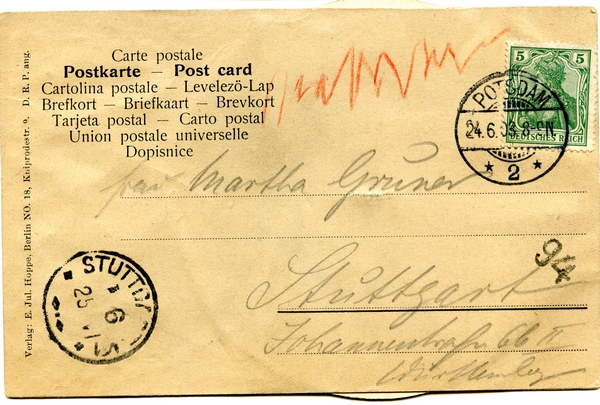 Carte postale
Postkarte – Post card
Cartolina postale – Levelező-Lap
Brefkort – Briefkaart – Brevkort
Tarjeta postal – Carto postal
Union postale universelle
Dopisnice
5 5
DEUTSCHES REICH
POTSDAM
24.6.03.8-9N.
* 2 *
Frau Martha Gruner
94
Stuttgart
Johannenstraße 66 II
Württemberg
STUTTG
6
25 VI
Verlag: E. Jul. Hoppe, Berlin NO. 18, Kniprodestr. 9. D. R. P. ang.